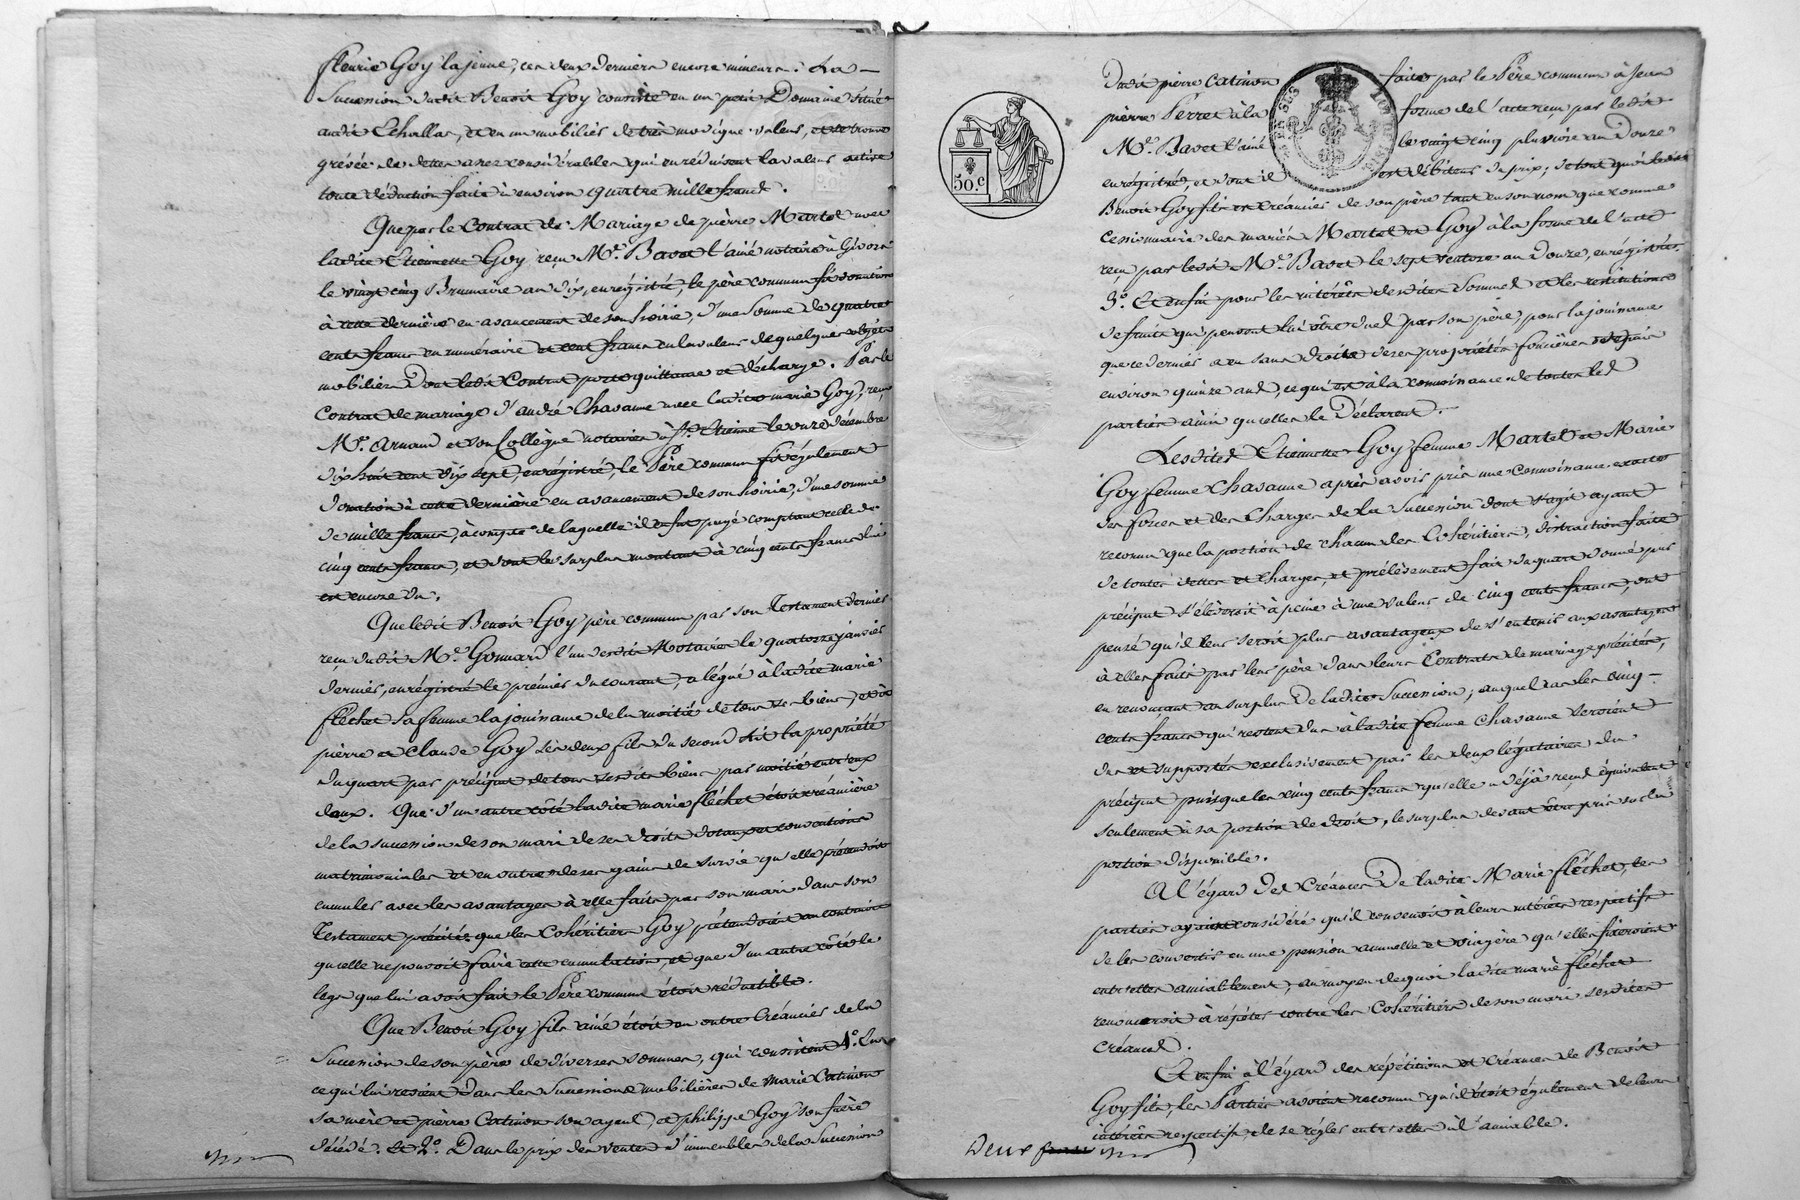 fleurie Goy la jeune, ces deux derniers encore mineurs. La
Succession dudit Benoit Goy consiste en un petit Domaine situé
audit Echallas, et en un mobilier de très modique valeur, et se trouve
grévée de dettes assez considérables qui en réduisent la valeur active
toute déduction faite à environ quatre mille francs.
Que par le Contrat de Mariage de pierre Martel avec
ladite Etiennette Goy reçu Me. Bavet l'ainé notaire à Givors
le vingt cinq Brumaire an dix, enrégistré, le père commun fit donation
à cette dernière en avancement de son hoirie, d'une Somme de quatre
cents francs en numéraire et cent francs en la valeur de quelques objets
mobiliers Dont ledit Contrat porte quittance et décharge. Par le
Contrat de mariage d'andré Chavanne avec ladite marie Goy, reçu
Me. Arnaud et son Collègue notaires à St. Etienne le onze décembre
dix huit cent dix sept, enrégistré, le Père commun fit également
donation à cette dernière en avancement de son hoirie, d'une somme
de mille francs, à compte de laquelle il en fut payé comptant celle de
cinq cents francs, et dont le surplus montant à cinq cents francs lui
est encore du.
Que ledit Benoit Goy père commun par son Testament dernier
reçu dudit Me. Gonnard l'un desdits Notaires le quatorze janvier
dernier, enrégistré le prémier du courant, a légué à ladite marie
fléchet sa femme la jouissance de la moitié de tous ses biens, et à
pierre et Claude Goy ses deux fils du second lit la propriété
du quart par préciput de tous sesdits biens par moitié entr'eux
deux. Que d'un autre côté ladite marie fléchet étoit créancière
de la succession de son mari de ses droits dotaux et conventions
matrimoniales et en outre de ses gains de survie qu'elle prétendoit
cumuler avec les avantages à elle faits par son mari dans son
Testament précité, que les Cohéritiers Goy prétendoient au contraire
qu'elle ne pouvoit faire cette cumulation, et que d'un autre côté le
legs que lui avoit fait le Père commun étoit réductible.
Que Benoit Goy fils ainé étoit en outre Créancier de la
Succession de son père de diverses sommes, qui consistent 1°. En
ce qui lui revient dans les Successions mobilières de marie Catinon
sa mère et pierre Catinon son ayeul, et philippe Goy son frère
décédé. Et 2°. Dans le prix des ventes d'immeubles de la Succession
50.c
Dudit pierre Catinon faites par le Père commun à Jean
pierre Perret à la forme de l'acte reçu par ledit
Me. Bavet l'ainé le vingt cinq pluviose an Douze
enrégistré, et dont il est débiteur du prix; de tout quoi ledit
Benoit Goy fils est créancier de son père tant en son nom que comme
cessionnaire des mariés Martel et Goy à la forme de l'acte
reçu par ledit Me. Bavet le sept ventose an Douze, enrégistré.
3°. Et enfin pour les intérêts desdites Sommes et les restitutions
de fruits qui peuvent lui être dues par son père, pour la jouissance
que ce dernier a eu sans droits de ses propriétés foncières depuis
environ quinze ans, ce qui est à la connoissance de toutes les
parties ainsi qu'elles le Déclarent.
Lesdites Etiennette Goy femme Martel et Marie
Goy femme Chavanne après avoir pris une Connoissance exacte
des forces et des Charges de la Succession dont s'agit ayant
reconnu que la portion de chacun des Cohéritiers, distraction faite
de toutes dettes et Charges, et prélèvement fait du quart donné par
préciput s'élèveroit à peine à une valeur de cinq cents francs, ont
pensé qu'il leur seroit plus avantageux de s'en tenir aux avantages
à elles faits par leur père dans leurs Contrats de mariage précités,
en renonçant au surplus De ladite Succession; auquel cas les cinq
cents francs qui restent dus à ladite femme Chavanne seroient
dus et supportés exclusivement par les deux légataires du
préciput puisque les cinq cents francs qu'elle a déjà reçus équivalent
seulement à sa portion de droit, le surplus devant être pris sur la
portion disponible.
A l'égard Des Créances De ladite Marie fléchet, les
parties ayant considéré qu'il convenoit à leurs intérêts respectifs
de les convertir en une pension annuelle et viagère qu'elles fixeroient
entr'elles amiablement, au moyen de quoi ladite marie fléchet
renonceroit à répéter contre les Cohéritiers de son mari sesdites
créances.
Et enfin à l'égard des répétitions et créances de Benoit
Goy fils, les Parties avoient reconnu qu'il étoit également de leurs
intérêts respectifs de se régler entr'elles à l'amiable.
Deux